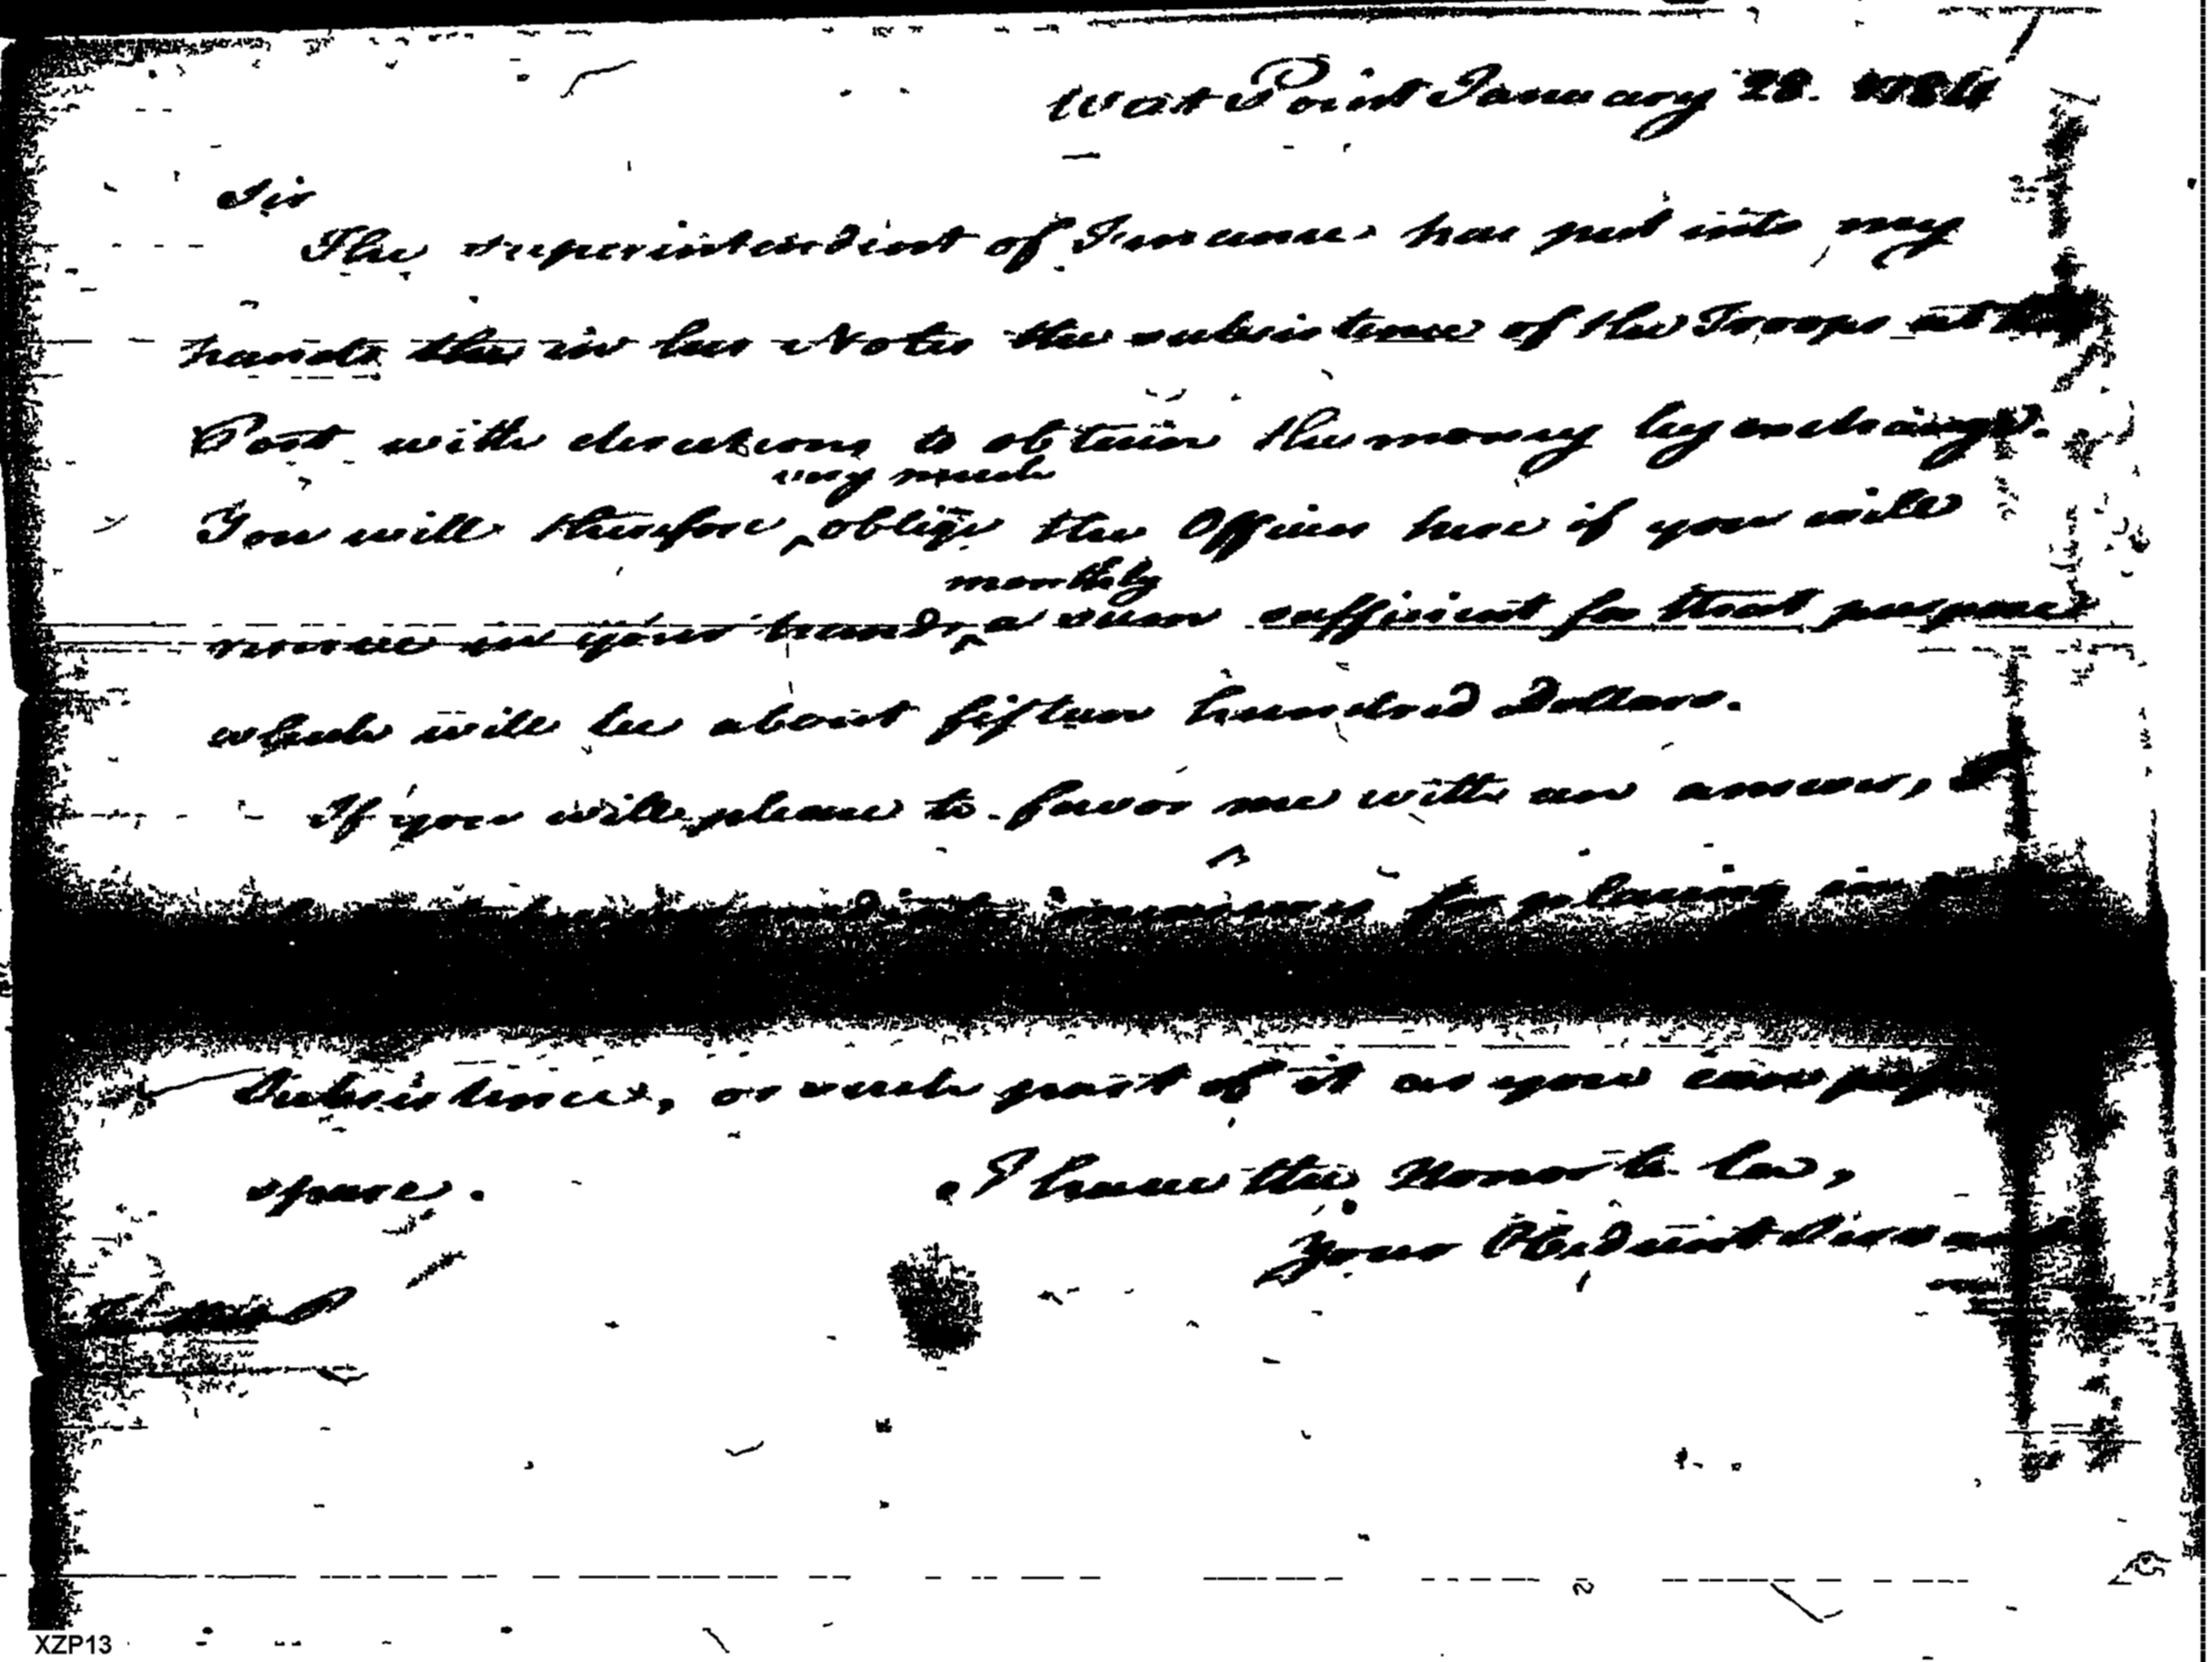 West Point January 28. 1784
Sir
The superintendent of Finance has put into my
hands the in his Notes the subsistence of the Troops at this
Post with directions to obtain the money by exchange.
very much
You will therefore ^ oblige the Officers here if you will
monthly
in your hands ^ a sum sufficient for that purpose
which will be about fifteen hundred Dollars.
If you will please to favor me with an answer, I
immediate measures for placing in
Subsistence, or such part of it as you can
spare. I have the Honor to be,
Your Obedient Servant
XZP13